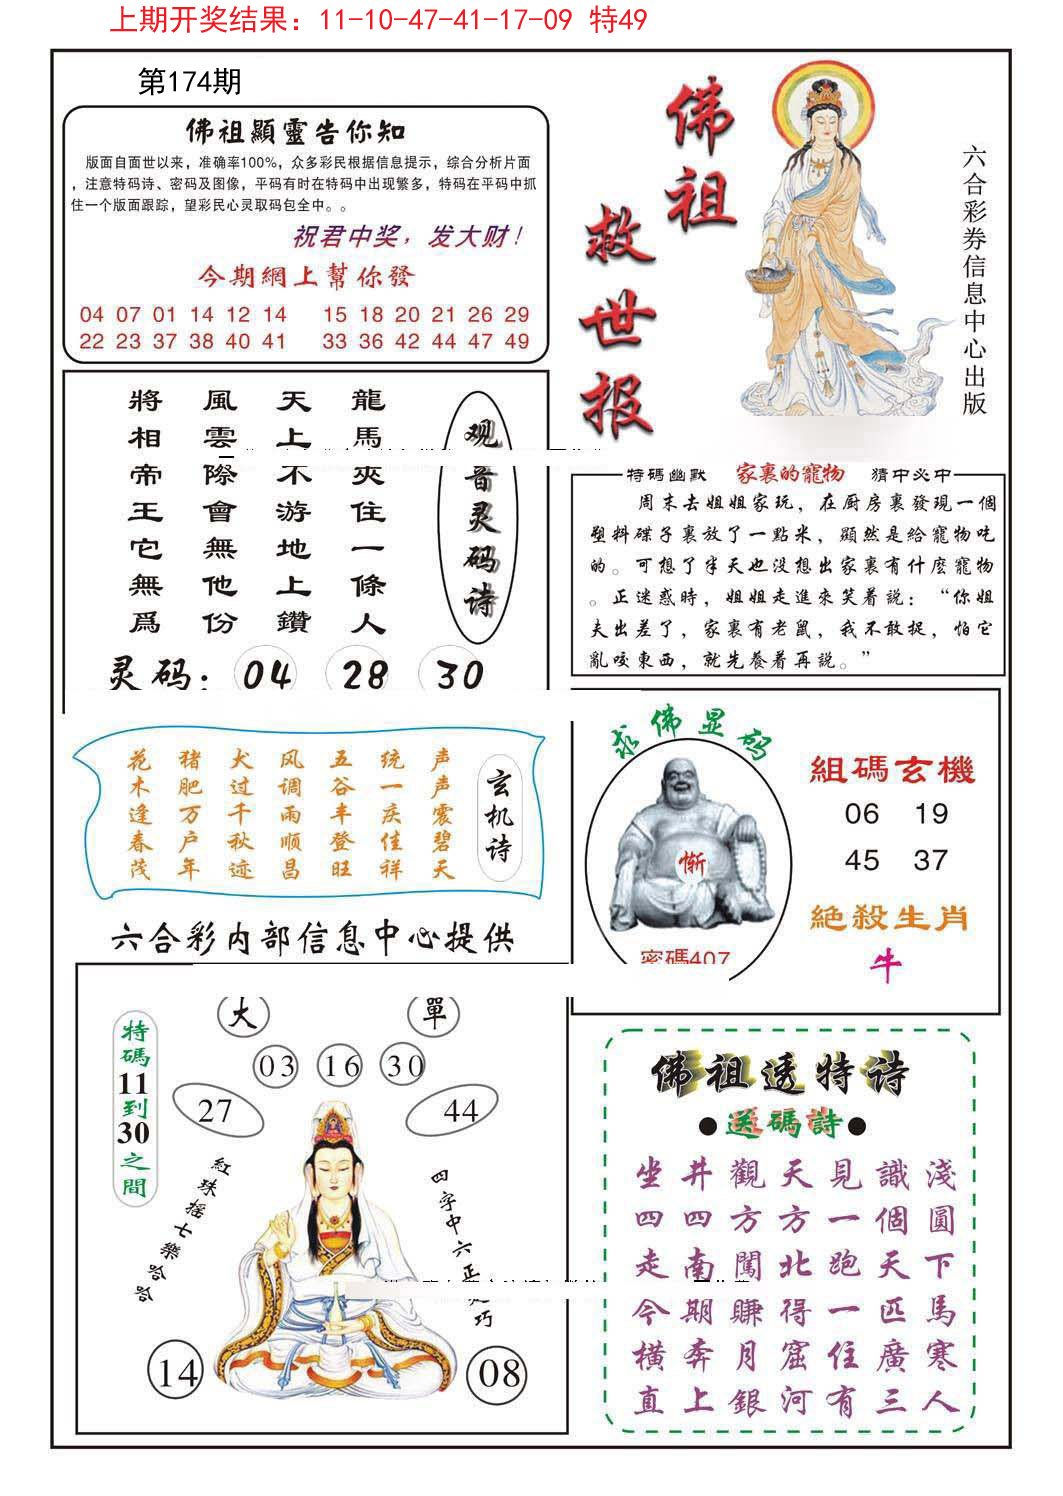 上期开奖结果：11-10-47-41-17-09 特49
第174期
佛祖顯靈告你知
版面自面世以来，准确率100%，众多彩民根据信息提示，综合分析片面
，注意特码诗、密码及图像，平码有时在特码中出现繁多，特码在平码中抓
住一个版面跟踪，望彩民心灵取码包全中。。
祝君中奖，发大财！
今期網上幫你發
04 07 01 14 12 14 15 18 20 21 26 29
22 23 37 38 40 41 33 36 42 44 47 49
佛祖
救世报
六合彩券信息中心出版
观音灵码诗
龍馬夾住一條人
天上不游地上鑽
風雲際會無他份
將相帝王它無爲
灵码：04 28 30
特碼幽默 家裏的寵物 猜中必中
周末去姐姐家玩，在厨房裏發現一個
塑料碟子裏放了一點米，顯然是给寵物吃
的。可想了半天也没想出家裏有什麽寵物
。正迷惑時，姐姐走進來笑着説：“你姐
夫出差了，家裏有老鼠，我不敢捉，怕它
亂咬東西，就先養着再説。”
玄机诗
声声震碧天
统一庆佳祥
五谷丰登旺
风调雨顺昌
犬过千秋迹
猪肥万户年
花木逢春茂
六合彩内部信息中心提供
求佛显码
惭
密碼407
組碼玄機
06 19
45 37
絕殺生肖
牛
特碼11到30之間
大 單
03 16 30
27 44
紅珠摇七樂哈哈
四字中六正
巧
14 08
佛祖透特诗
●送碼詩●
坐井觀天見識淺
四四方方一個圓
走南闖北跑天下
今期賺得一匹馬
横奔月窟住廣寒
直上銀河有三人